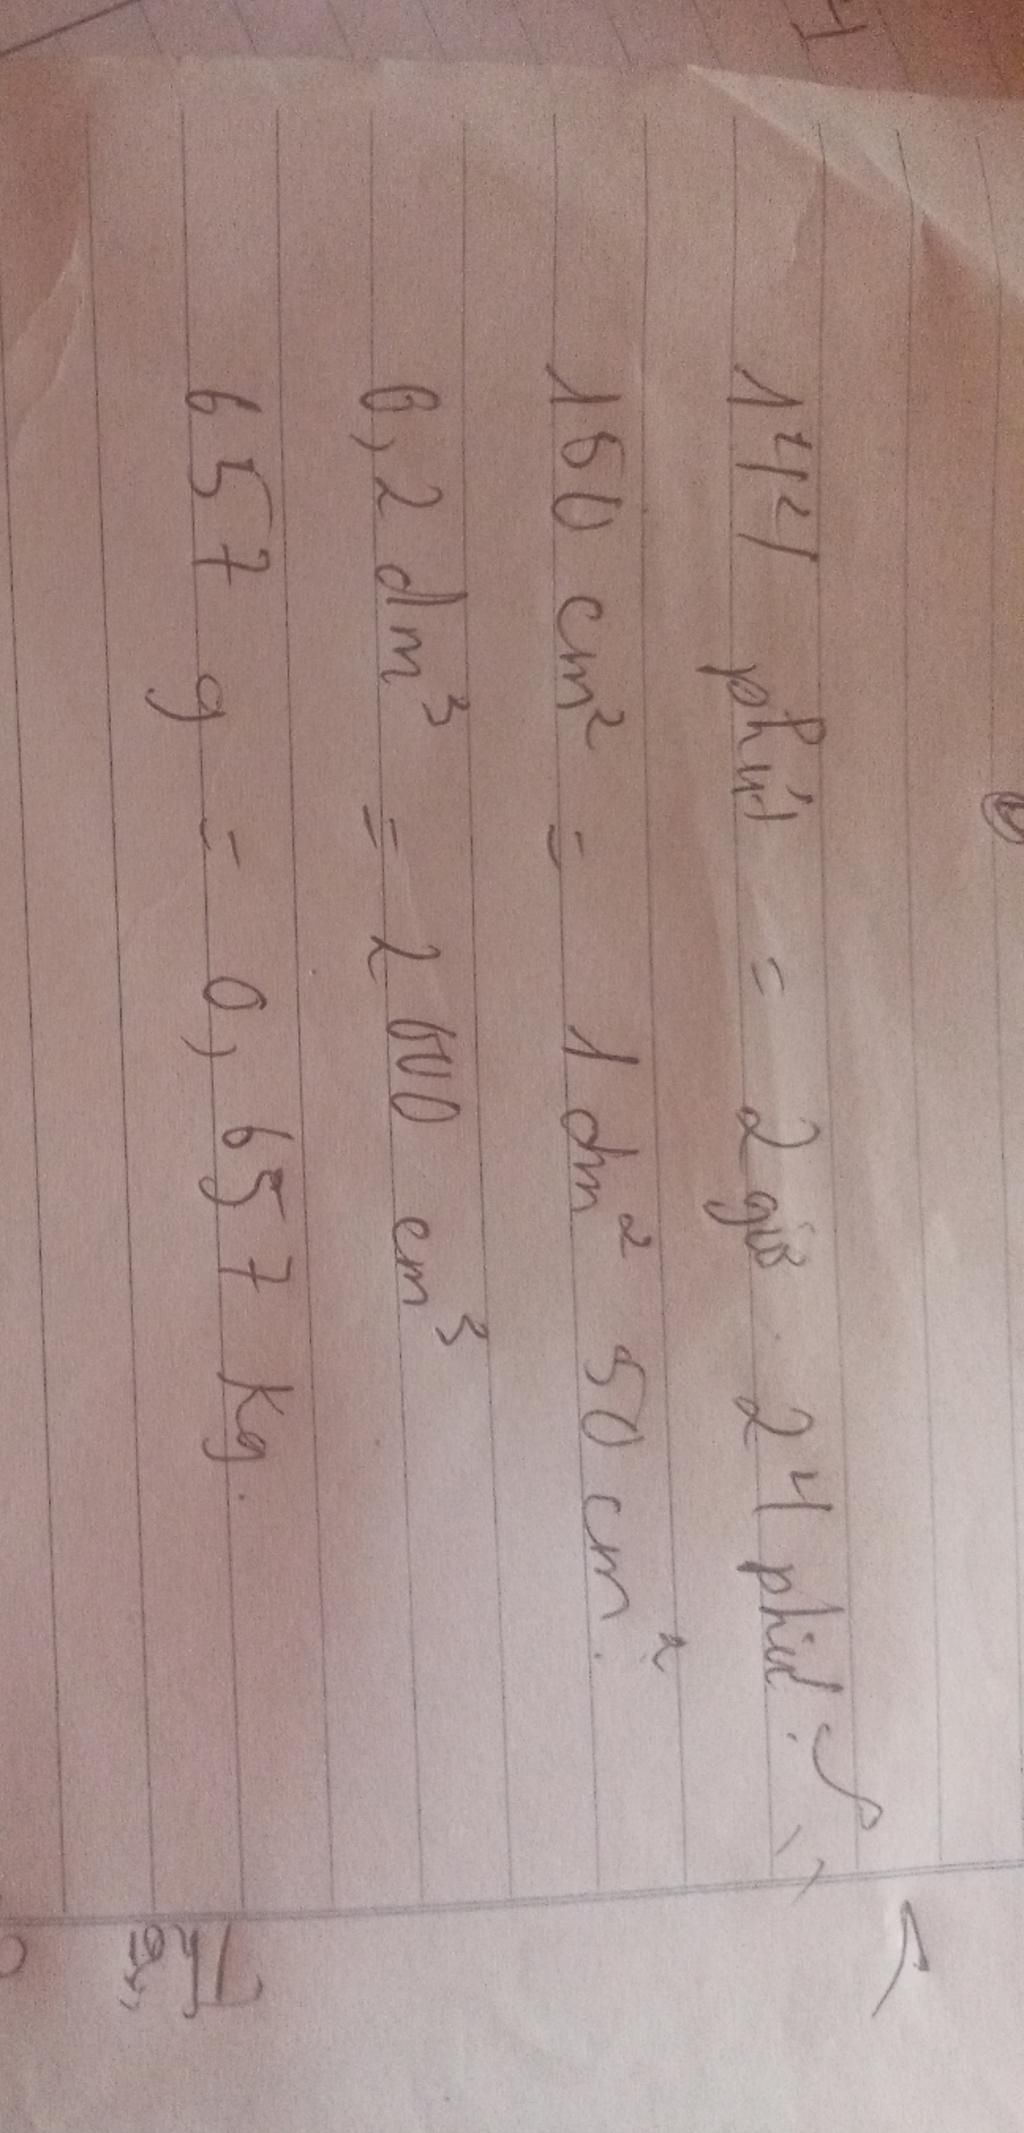 144 phút = 2 giờ 24 phút.
150 cm² = 1 dm² 50 cm².
0,2 dm³ = 200 cm³
657 g = 0,657 kg.